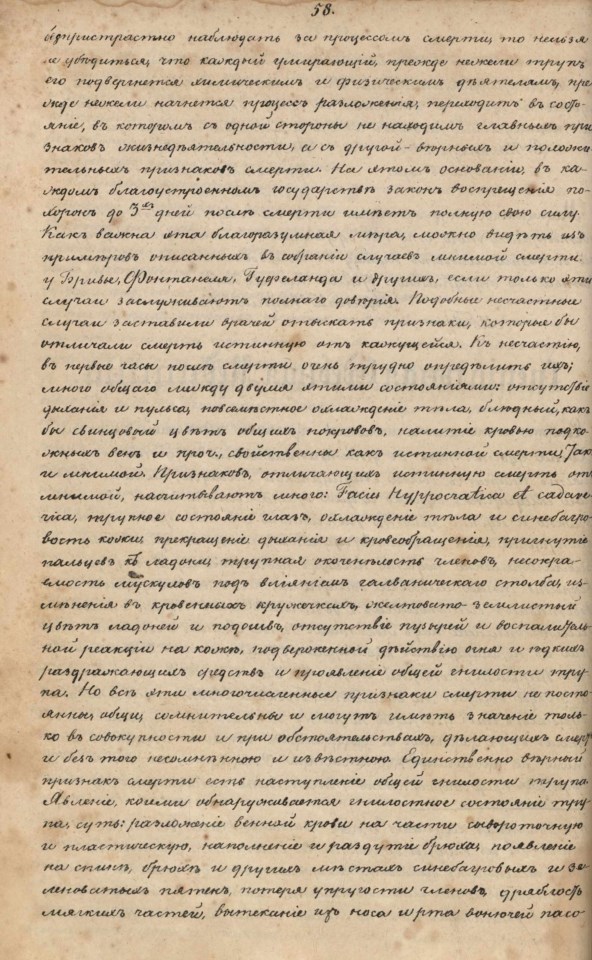 58.
безпристрастно наблюдать за процессомъ смерти, то нельзя
не убѣдиться, что каждый умирающій, прежде нежели трупъ
его подвергнется химическимъ и физическимъ дѣятелямъ, пре
жде нежели начнется процессъ разложенія, переходитъ въ состо-
яніе, въ которомъ съ одной стороны не находимъ главныхъ при
знаковъ жизнедѣятельности, а съ другой - вѣрныхъ и положи
тельныхъ признаковъ смерти. На этомъ основаніи, въ ка-
ждомъ благоустроенномъ государствѣ законъ воспрещенія по-
хоронъ до 3хъ дней послѣ смерти имѣетъ полную свою силу.
Какъ важна эта благоразумная мѣра, можно видѣть изъ
примѣровъ описанныхъ въ собраніи случаевъ мнимой смерти
у Брикье, Фонтанеля, Гуфеланда и другихъ, если только эти
случаи заслуживаютъ полнаго довѣрія. Подобные несчастные
случаи заставили врачей отыскать признаки, которые бы
отличали смерть истинную отъ кажущейся. Къ несчастію,
въ первые часы послѣ смерти очень трудно опредѣлить ихъ;
много общаго между двумя этими состояніями: отсутствіе
дыханія и пульса, повсемѣстное охлажденіе тѣла, блѣдный, какъ
бы свинцовый цвѣтъ общихъ покрововъ, налитіе кровью подко
жныхъ венъ и проч., свойственны какъ истинной смерти, такъ
и мнимой. Признаковъ, отличающихъ истинную смерть отъ
мнимой, насчитываютъ много: Facies Hyppocratica et cadave-
rica, трупное состояніе глазъ, охлажденіе тѣла и синебагро-
вость кожи, прекращеніе дыханія и кровеобращенія, пригнутіе
пальцевъ къ ладони, трупная окоченѣлость членовъ, несокра-
емость мускуловъ подъ вліяніемъ галваническаго столба, из-
мѣненія въ кровенныхъ кружочкахъ, желтовато-землистый
цвѣтъ ладоней и подошвъ, отсутствіе пузырей и воспалитель-
ной реакціи на кожѣ, подверженной дѣйствію огня и ѣдкихъ
раздражающихъ средствъ и проявленіе общей гнилости тру-
па. Но всѣ эти многочисленные признаки смерти не посто-
янны, общи, сомнительны и могутъ имѣть значеніе толь-
ко въ совокупности и при обстоятельствахъ, дѣлающихъ смерть
и безъ того несомнѣнною и извѣстною. Единственно вѣрный
признакъ смерти есть наступленіе общей гнилости трупа.
Явленіе, коими обнаруживается гнилостное состояніе тру-
па, суть: разложеніе венной крови на части сывороточную
и пластическую, наполненіе и раздутіе брюха, появленіе
на спинѣ, брюхѣ и другихъ мѣстахъ синебагровыхъ и зе-
леноватыхъ пятенъ, потеря упругости членовъ, дряблость
мягкихъ частей, вытеканіе изъ носа и рта вонючей пасо-